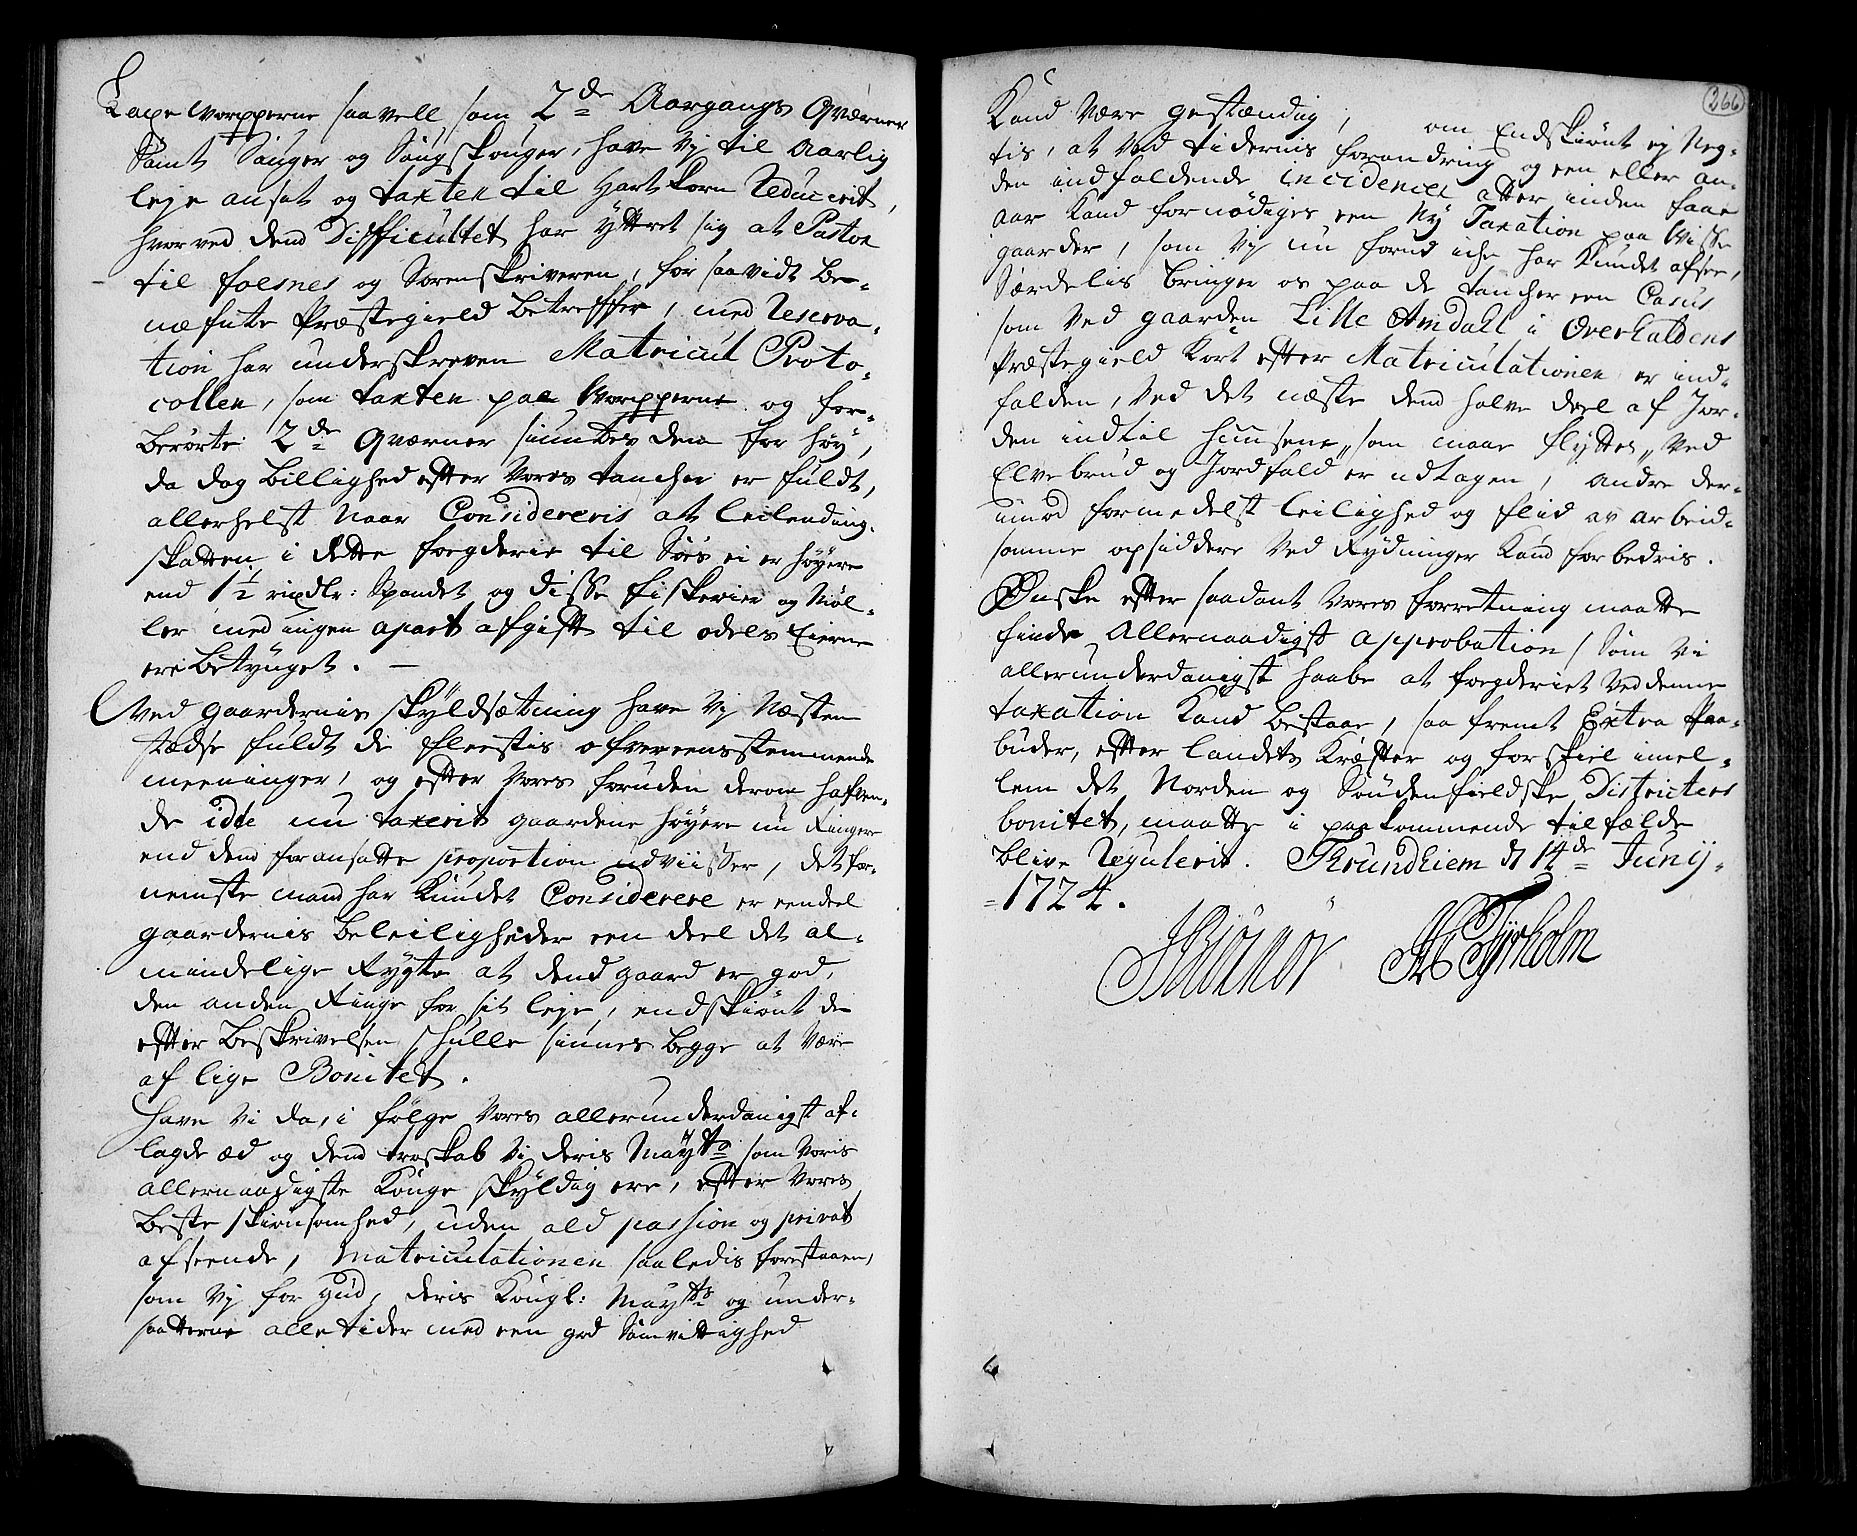 Laxe Worpperne saa vell som 2de Aargangs Qværner
Samt Sauger og Saugskouger, have Vj til Aarlig
leje ansat og taxten til Hartkorn Reducerit,
hvorved dend Difficultet har ÿttret sig at Pastor
til foesnes og Sorenskriveren, for saa vidt be-
næfnte Præstegield betreffer, med Reserva-
tion har underskreven Matricul Proto-
collen, som taxten paa Worpperne og for-
berørte 2de Qværner siuntes dem for høy,
da dog billighed efter Vores tancher er fuldt,
allerhelst naar Considereris at leilending-
skatten i dette fogderie til Søes ei er høyere
end 1½ rixdlr: Spandet og disse fiskerier og Møl-
ler med ingen apart afgift til odels Eierne
ere betynget. —
Ved gaardernis skÿldsætning have Vj Næsten
stædse fuldt de fleestis ofvereensstemmende
meeninger, og efter Vores foruden derom hafven-
de idée nu taxerit gaardene høyere nu Ringere
end dend foransatte proportion udviisser, det for-
nemste mand har kundet Considerere er eendeel
gaardernis beleiligheder een deel det al-
mindelige Rygte at dend gaard er god,
den anden Ringe for sit leje, endskiønt de
efter beskrivelsen skulle siunes begge at Være
af lige Bonitet.
Have Vi da, i følge Vores allerunderdanigst af-
lagde æd og dend troskab Vi deris Mayts som Voris
allernaadigste Konge skÿldig ere, efter Vores
beste skiønsomhed, uden ald passion og privat
afseende, Matriculationen saaledis forestaaen,
som Vj for Gud, deris Kongl: Mayts og under-
saatterne alle tider med een god Samvittighed
266
Kand Være gestændig, om Endskiønt ej Neg-
tis, at Ved tidernis forandring og een eller an-
den indfaldende incidencer atter inden faae
aar kand fornødiges een Nÿ Taxation paa Visse
gaarder, som Vj nu forud iche har kundet afsee,
Særdelis bringer os paa de tancher een Casus
som Ved gaarden Lille Amdall i Overhaldens
Præstegield kort efter Matriculationen er ind-
falden, Ved det næste dend halve deel af Jor-
den indtil huusene, som maae flyttes, Ved
Elvebrud og Jordfald er udtagen, andre der-
imod formedelst leilighed og flid av arbeid-
somme opsiddere Ved Rydninger kand forbedris.
Ønske efter saadant Vores forretning maatte
finde Allernaadigst approbation / Som Vi
allerunderdanigst haabe at fogderiet Ved denne
taxation kand bestaae, saa fremt Extra Paa-
buder, efter landets kræfter og forskiel imel-
lem det Norden og Søndenfieldske Districters
bonitet, maatte i paakommende tilfælde
blive Regulerit. Thrundhiem d 14de Junij-
1724.